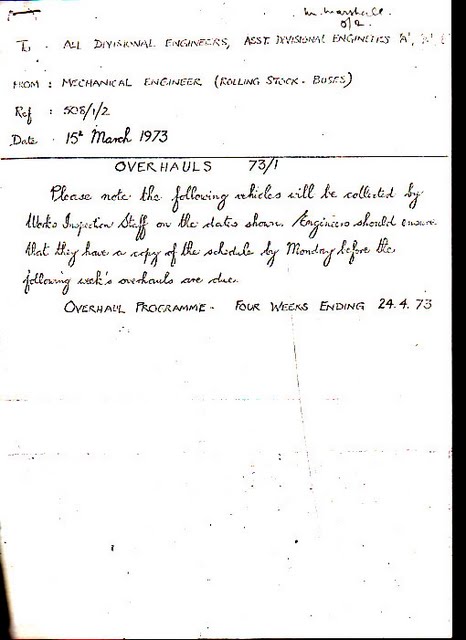 M. Marshall.
TO - ALL DIVISIONAL ENGINEERS, ASST. DIVISIONAL ENGINEERS 'A',
FROM : MECHANICAL ENGINEER (ROLLING STOCK - BUSES)
Ref : 508/1/2
Date : 15th March 1973
OVERHAULS 73/1
Please note the following vehicles will be collected by
Works Inspection Staff on the dates shown. Engineers should ensure
that they have a copy of the schedule by Monday before the
following week's overhauls are due.
OVERHALL PROGRAMME - FOUR WEEKS ENDING 24.4.73